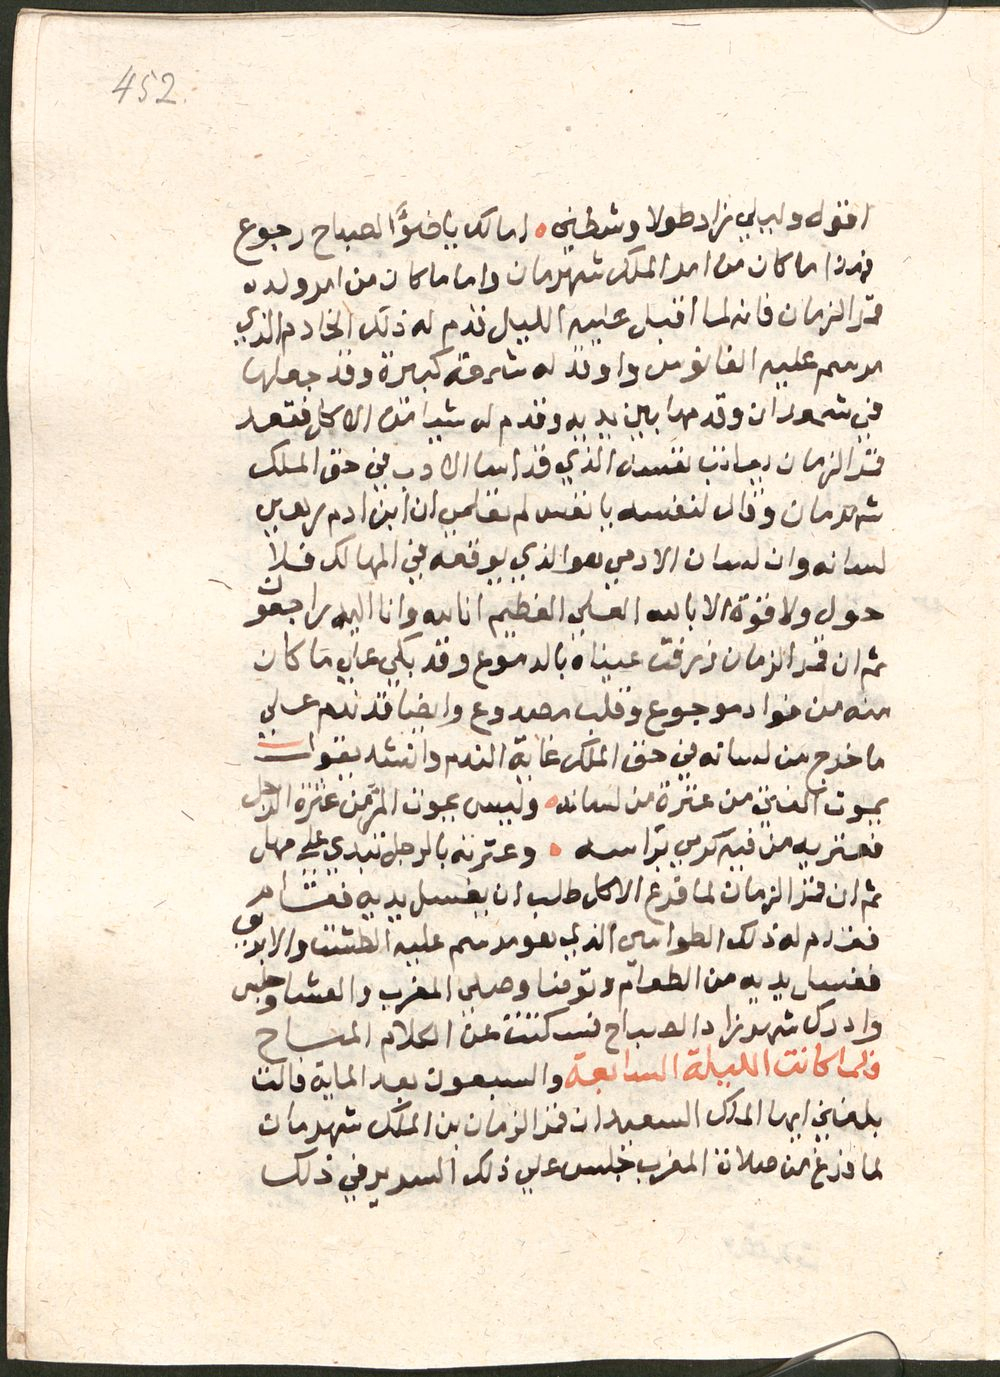 452.
اقول وليلي زاد طولا وشطني ه امالك يا ضوّ الصباح رجوع
فهذا ما كان من امر الملك شهرمان واما ما كان من امر ولده
قمر الزمان فانه لما اقبل عليه الليل قدم له ذلك الخادم الذي
مرسم عليه الفانوس واوقد له شمعة كبيرة وقد جعلها
في شمعدان وقدمها بين يديه وقدم له شيا من الاكل فقعد
قمر الزمان يعاتب نفسه الذي قد اسا الادب في حق الملك
شهرمان وقال لنفسه يا نفس لم تعلمي ان ابن ادم رهين
لسانه وان لسان الادمي هو الذي يوقعه في المهالك فلا
حول ولا قوة الا بالله العلي العظيم انا لله وانا اليه راجعون
ثم ان قمر الزمان زرفت عيناه بالدموع وقد بكي علي ما كان
منه من فواد موجوع وقلب مصدوع وايضا قد ندم علي
ما خرج من لسانه في حق الملك غاية الندم وانشد يقول
يموت الفتي من عثرة من لسانه ه وليس يموت المرء من عثرة الرجل
فعثرته من فيه ترمي براسه ه وعثرته بالرجل تبري علي مهل
ثم ان قمر الزمان لما فرغ الاكل طلب ان يغسل يديه فقام
فقدم له ذلك الطواشي الذي هو مرسم عليه الطشت والابريق
فغسل يديه من الطعام وتوضا وصلي المغرب والعشا وجلس
وادرك شهرزاد الصباح فسكتت عن الكلام المباح
فلما كانت الليلة السابعة والسبعون بعد الماية قالت
بلغني ايها الملك السعيد ان قمر الزمان بن الملك شهرمان
لما فرغ من صلاة المغرب جلس علي ذلك السرير في ذلك